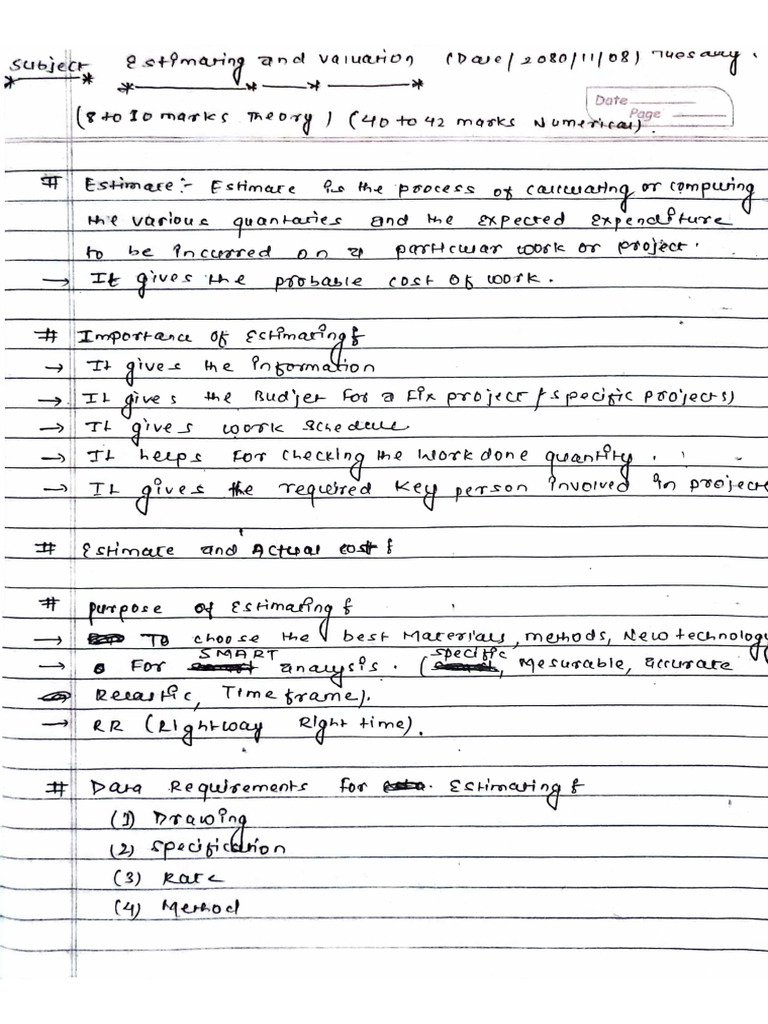 Subject Estimating and Valuation (Date/2080/11/08) Tuesday.
(8 to 10 marks Theory) (40 to 42 marks Numerical).
Date
Page
# Estimate:- Estimate is the process of calculating or computing
the various quantaries and the expected expenditure
to be incurred on a particular work or project.
→ It gives the probable cost of work.
# Importance of Estimating:
→ It gives the information
→ It gives the Budjet for a fix project / specific projects)
→ It gives work schedule
→ It helps for checking the work done quantity.
→ It gives the required key person involved in project
# Estimate and Actual cost:
# purpose of Estimating:
→ To choose the best Materials, methods, New technology
→ For SMART analysis. (specific, Mesurable, accurate
Relastic, Time frame).
→ RR (Rightway Right time).
# Data Requirements for Estimating:
(1) Drawing
(2) Specification
(3) Rate
(4) Method